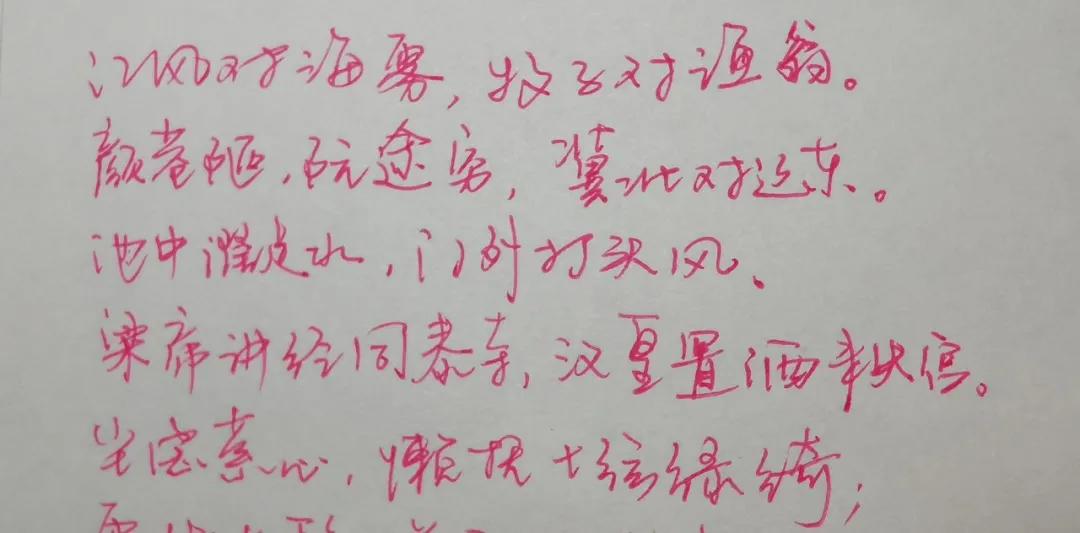 江风对海雾，牧子对渔翁。
颜巷陋，阮途穷，冀北对辽东。
池中濯足水，门外打头风、
梁帝讲经同泰寺，汉皇置酒未央宫。
尘虑萦心，懒抚七弦绿绮；